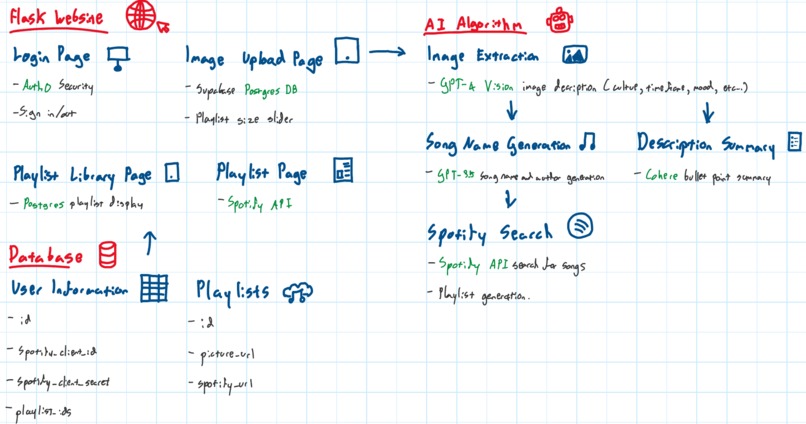 Flask Website
Login Page
- Auth0 Security
- Sign in/out
Image Upload Page
- Supabase Postgres DB
- Playlist size slider
Playlist Library Page
- Postgres playlist display
Playlist Page
- Spotify API
Database
User Information
- id
- spotify_client_id
- spotify_client_secret
- playlist_ids
Playlists
- id
- picture_url
- spotify_url
AI Algorithm
Image Extraction
- GPT-4 Vision image description (culture, timeframe, mood, etc...)
Song Name Generation
- GPT-3.5 song name and author generation
Description Summary
- Cohere bullet point summary
Spotify Search
- Spotify API search for songs
- Playlist generation.